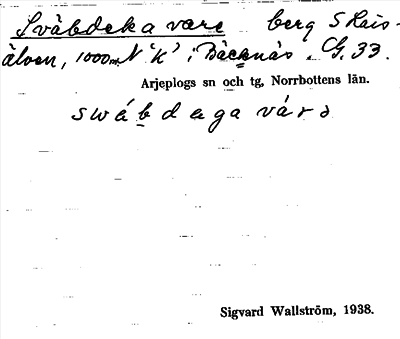 Sväbdeka vare berg S Kais-
älven, 1000 m N 'K' i Bäcknäs. G. 33.
Arjeplogs sn och tg, Norrbottens län.
swábdagavárə
Sigvard Wallström, 1938.